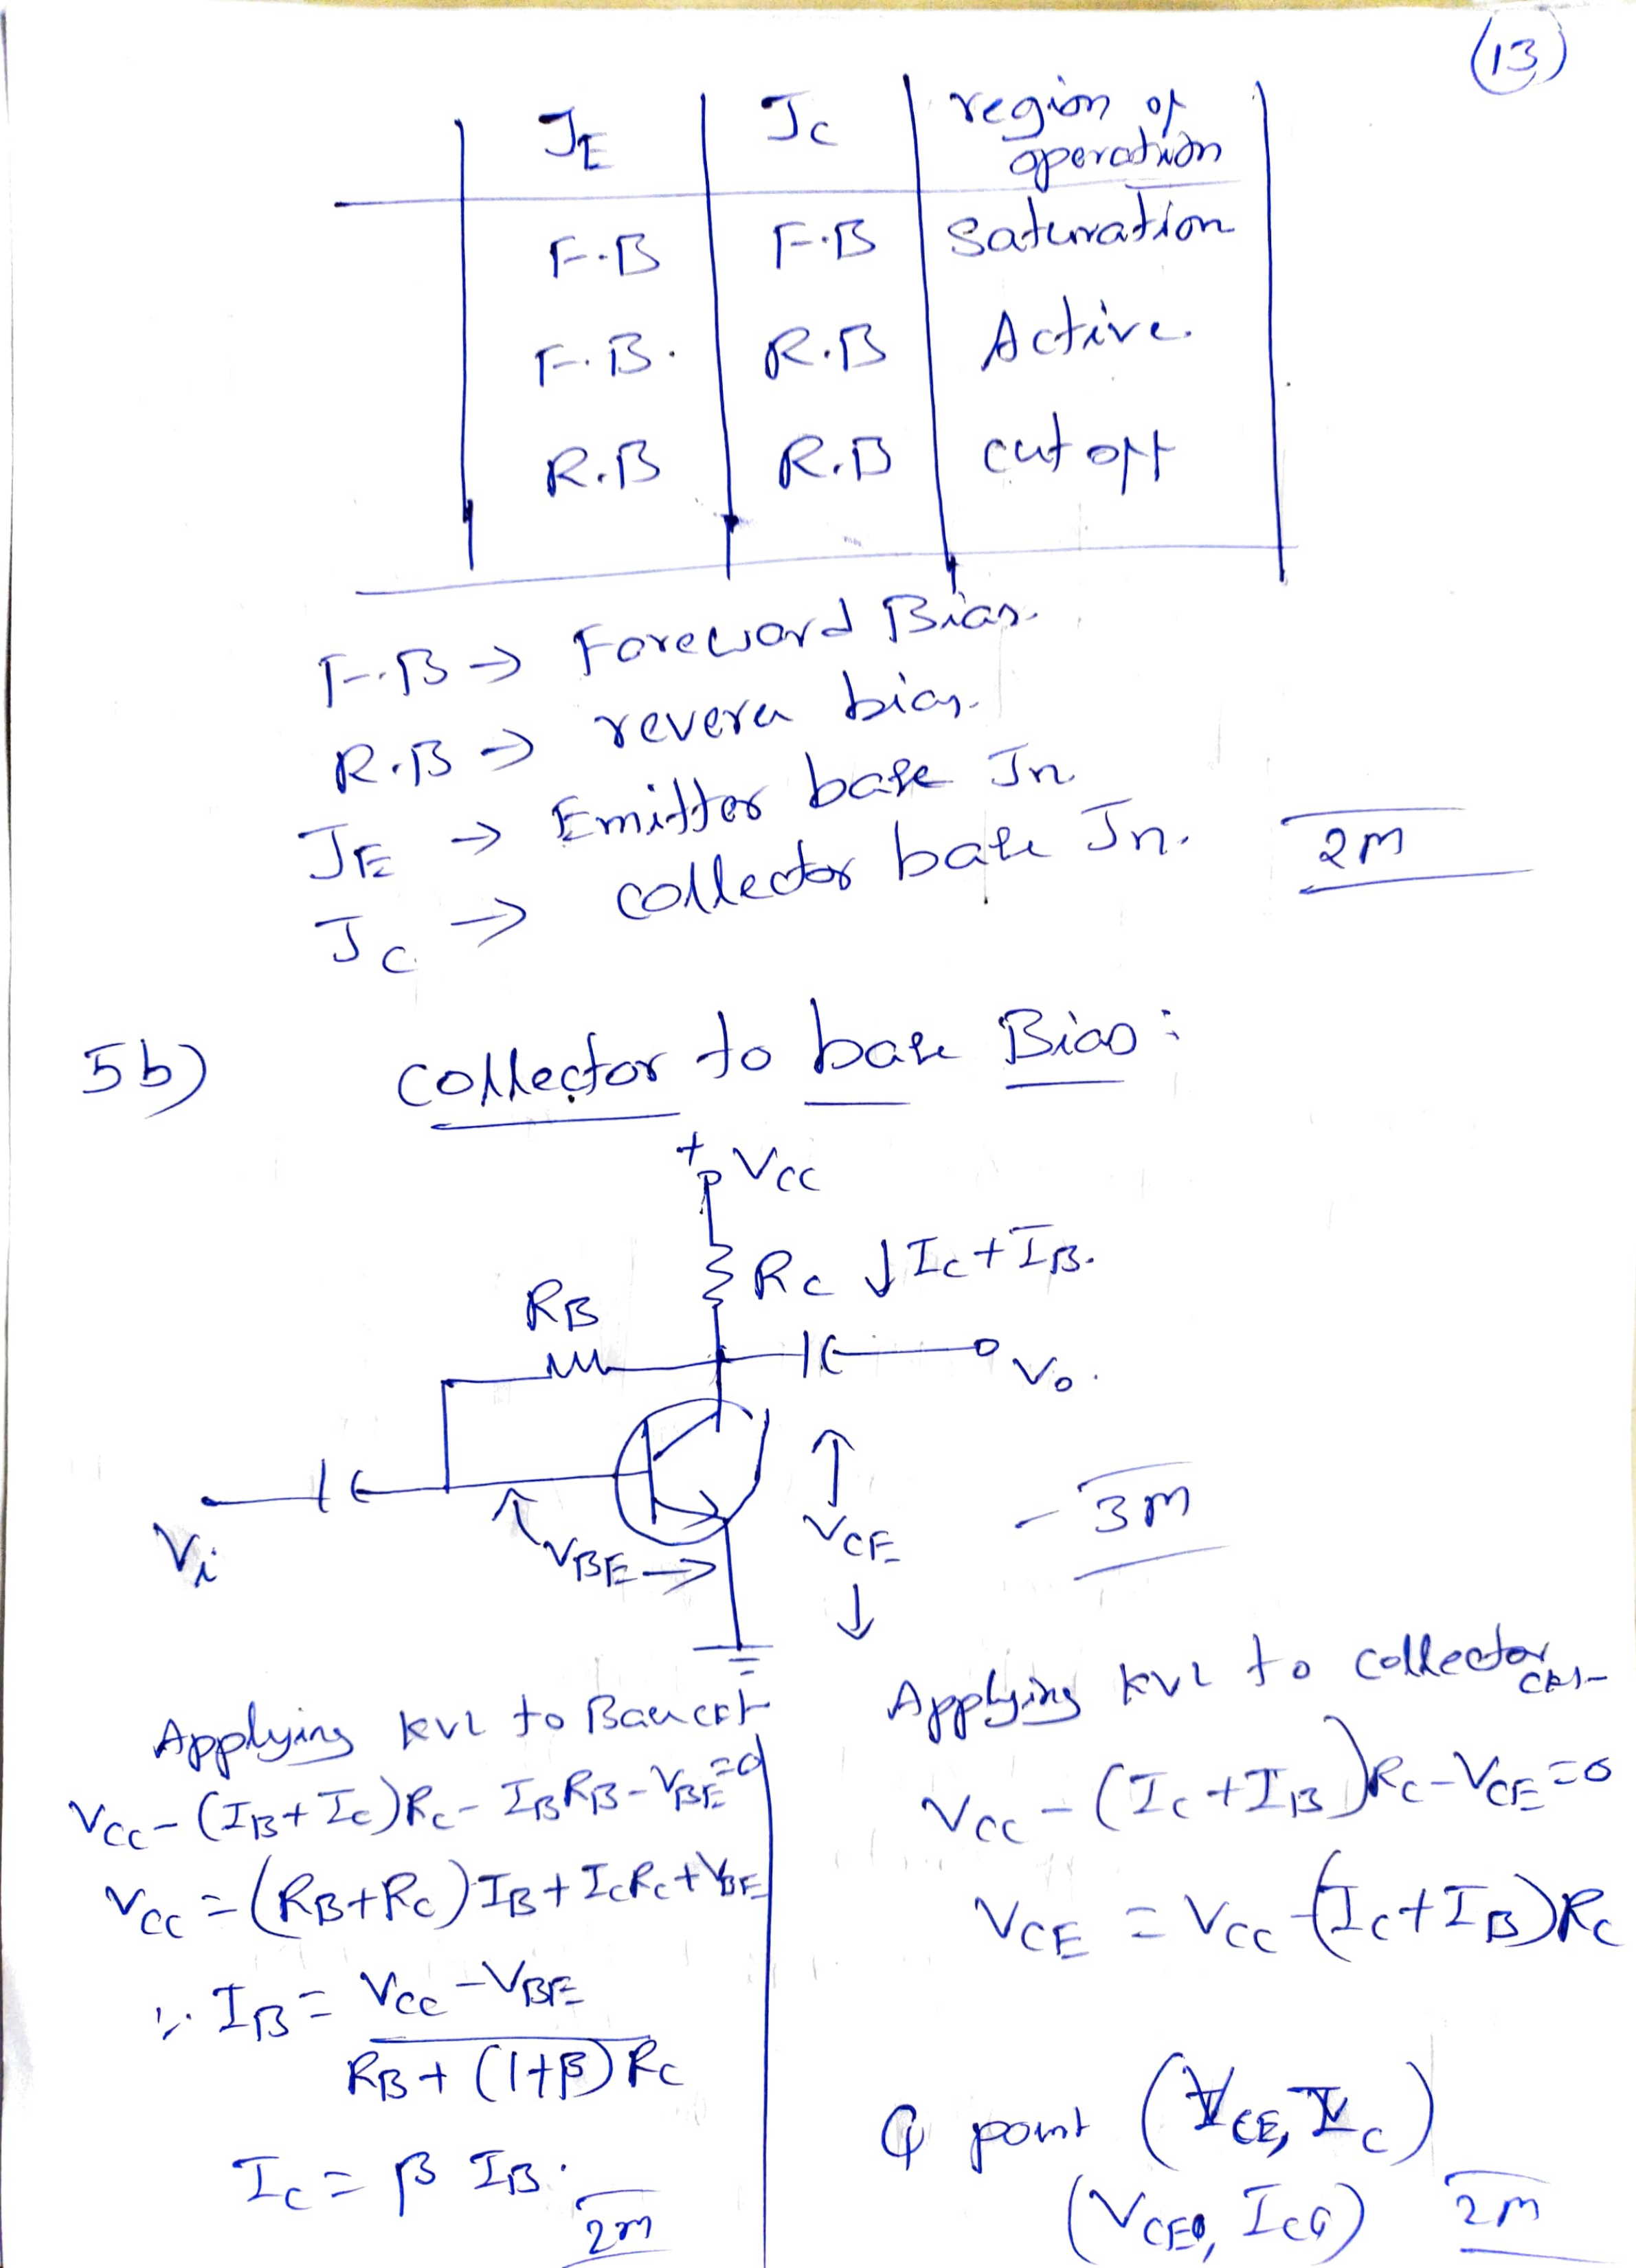 (13)
J_E J_C region of
operation
F.B F.B Saturation
F.B. R.B Active.
R.B R.B cut off
F.B → Foreward Bias.
R.B → bias.
J_E → Emitter base Jn
J_C → collector base Jn.
2M
5b) collector to base Bias :
+ VCC
RC ↓ IC + IB.
RB
Vo.
Vi
VBE
VCE
- 3M
Applying KVL to Base ckt
VCC - (IB + IC) RC - IB RB - VBE = 0
VCC = (RB + RC) IB + IC RC + VBE
∴ IB = VCC - VBE
RB + (1+β) RC
IC = β IB.
2M
Applying KVL to collector ckt
VCC - (IC + IB) RC - VCE = 0
VCE = VCC - (IC + IB) RC
Q point (VCE, IC)
(VCEQ, ICQ)
2M